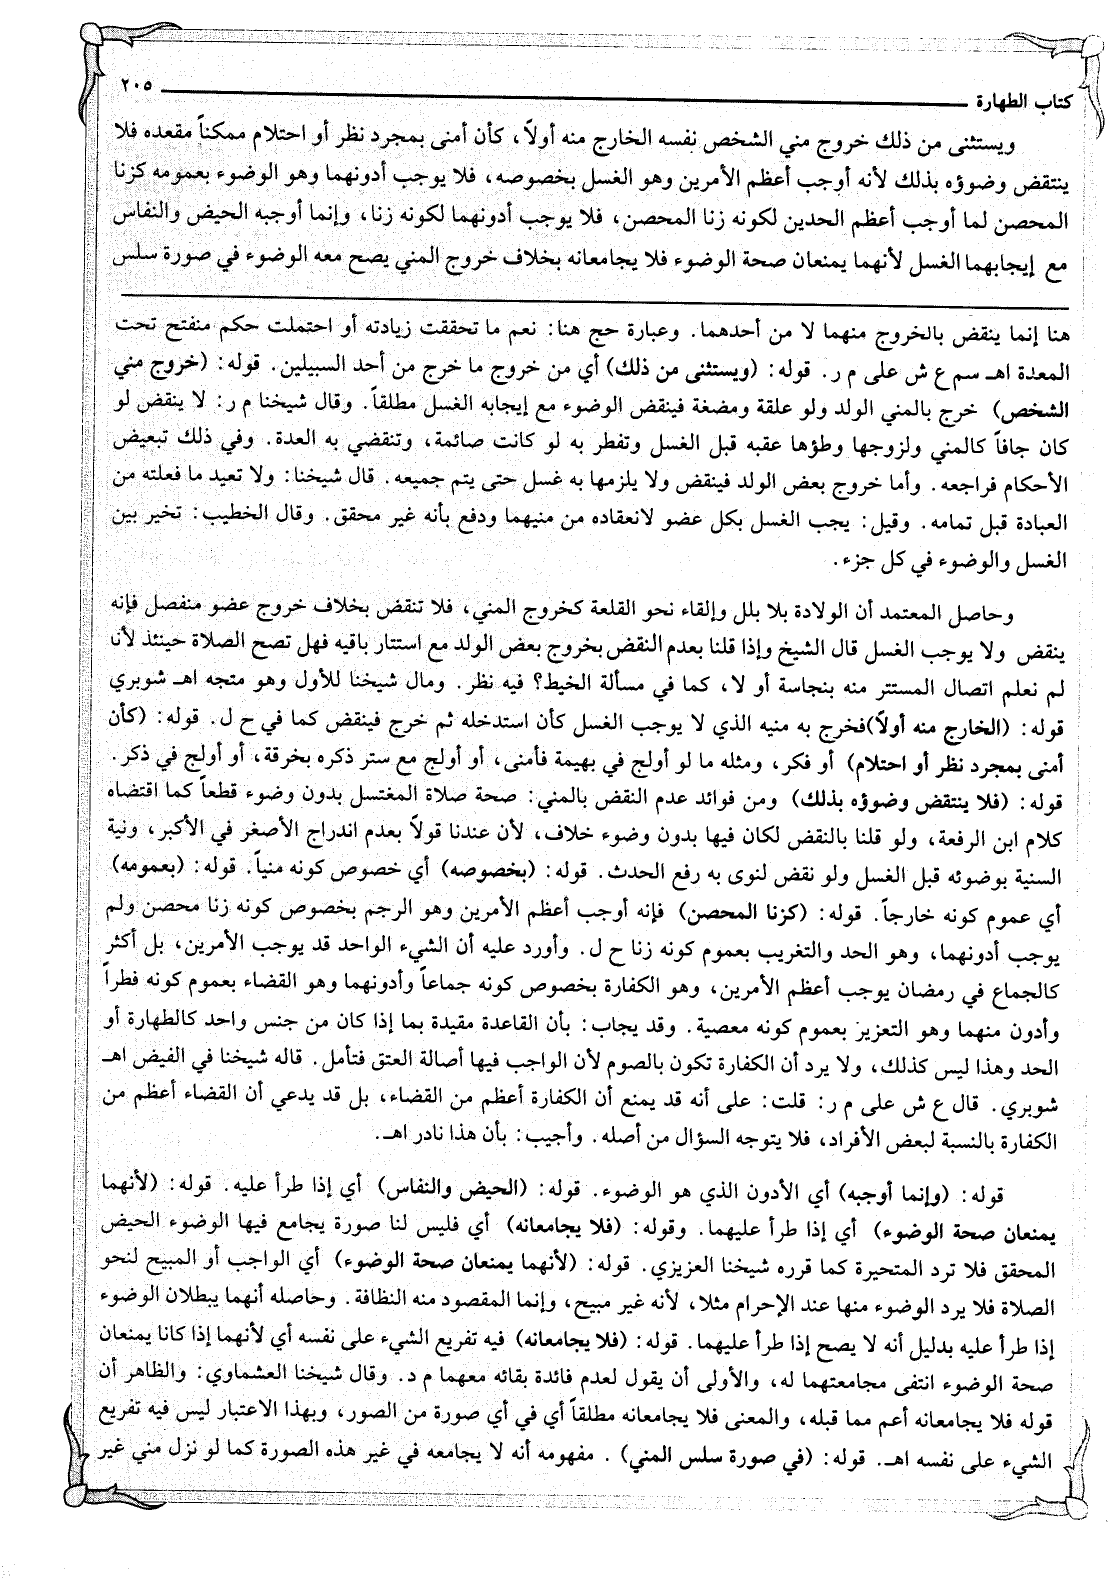 كتاب الطهارة ٢٠٥
ويستثنى من ذلك خروج مني الشخص نفسه الخارج منه أولاً، كأن أمنى بمجرد نظر أو احتلام ممكناً مقعده فلا
ينتقض وضوؤه بذلك لأنه أوجب أعظم الأمرين وهو الغسل بخصوصه، فلا يوجب أدونهما وهو الوضوء بعمومه كزنا
المحصن لما أوجب أعظم الحدين لكونه زنا المحصن، فلا يوجب أدونهما لكونه زنا، وإنما أوجبه الحيض والنفاس
مع إيجابهما الغسل لأنهما يمنعان صحة الوضوء فلا يجامعانه بخلاف خروج المني يصح معه الوضوء في صورة سلس
هنا إنما ينقض بالخروج منهما لا من أحدهما. وعبارة حج هنا: نعم ما تحققت زيادته أو احتملت حكم منفتح تحت
المعدة اهـ سم ع ش على م ر. قوله: (ويستثنى من ذلك) أي من خروج ما خرج من أحد السبيلين. قوله: (خروج مني
الشخص) خرج بالمني الولد ولو علقة ومضغة فينقض الوضوء مع إيجابه الغسل مطلقاً. وقال شيخنا م ر: لا ينقض لو
كان جافاً كالمني ولزوجها وطؤها عقبه قبل الغسل وتفطر به لو كانت صائمة، وتنقضي به العدة. وفي ذلك تبعيض
الأحكام فراجعه. وأما خروج بعض الولد فينقض ولا يلزمها به غسل حتى يتم جميعه. قال شيخنا: ولا تعيد ما فعلته من
العبادة قبل تمامه. وقيل: يجب الغسل بكل عضو لانعقاده من منيهما ودفع بأنه غير محقق. وقال الخطيب: تخير بين
الغسل والوضوء في كل جزء.
وحاصل المعتمد أن الولادة بلا بلل وإلقاء نحو القلعة كخروج المني، فلا تنقض بخلاف خروج عضو منفصل فإنه
ينقض ولا يوجب الغسل قال الشيخ وإذا قلنا بعدم النقض بخروج بعض الولد مع استتار باقيه فهل تصح الصلاة حينئذ لأنا
لم نعلم اتصال المستتر منه بنجاسة أو لا، كما في مسألة الخيط؟ فيه نظر. ومال شيخنا للأول وهو متجه اهـ شوبري
قوله: (الخارج منه أولاً)فخرج به منيه الذي لا يوجب الغسل كأن استدخله ثم خرج فينقض كما في ح ل. قوله: (كأن
أمنى بمجرد نظر أو احتلام) أو فكر، ومثله ما لو أولج في بهيمة فأمنى، أو أولج مع ستر ذكره بخرقة، أو أولج في ذكر.
قوله: (فلا ينتقض وضوؤه بذلك) ومن فوائد عدم النقض بالمني: صحة صلاة المغتسل بدون وضوء قطعاً كما اقتضاه
كلام ابن الرفعة، ولو قلنا بالنقض لكان فيها بدون وضوء خلاف، لأن عندنا قولاً بعدم اندراج الأصغر في الأكبر، ونية
السنية بوضوئه قبل الغسل ولو نقض لنوى به رفع الحدث. قوله: (بخصوصه) أي خصوص كونه منياً. قوله: (بعمومه)
أي عموم كونه خارجاً. قوله: (كزنا المحصن) فإنه أوجب أعظم الأمرين وهو الرجم بخصوص كونه زنا محصن ولم
يوجب أدونهما، وهو الحد والتغريب بعموم كونه زنا ح ل. وأورد عليه أن الشيء الواحد قد يوجب الأمرين، بل أكثر
كالجماع في رمضان يوجب أعظم الأمرين، وهو الكفارة بخصوص كونه جماعاً وأدونهما وهو القضاء بعموم كونه فطراً
وأدون منهما وهو التعزيز بعموم كونه معصية. وقد يجاب: بأن القاعدة مقيدة بما إذا كان من جنس واحد كالطهارة أو
الحد وهذا ليس كذلك، ولا يرد أن الكفارة تكون بالصوم لأن الواجب فيها أصالة العتق فتأمل. قاله شيخنا في الفيض اهـ
شوبري. قال ع ش على م ر: قلت: على أنه قد يمنع أن الكفارة أعظم من القضاء، بل قد يدعي أن القضاء أعظم من
الكفارة بالنسبة لبعض الأفراد، فلا يتوجه السؤال من أصله. وأجيب: بأن هذا نادر اهـ.
قوله: (وإنما أوجبه) أي الأدون الذي هو الوضوء. قوله: (الحيض والنفاس) أي إذا طرأ عليه. قوله: (لأنهما
يمنعان صحة الوضوء) أي إذا طرأ عليهما. وقوله: (فلا يجامعانه) أي فليس لنا صورة يجامع فيها الوضوء الحيض
المحقق فلا ترد المتحيرة كما قرره شيخنا العزيزي. قوله: (لأنهما يمنعان صحة الوضوء) أي الواجب أو المبيح لنحو
الصلاة فلا يرد الوضوء منها عند الإحرام مثلا، لأنه غير مبيح، وإنما المقصود منه النظافة. وحاصله أنهما يبطلان الوضوء
إذا طرأ عليه بدليل أنه لا يصح إذا طرأ عليهما. قوله: (فلا يجامعانه) فيه تفريع الشيء على نفسه أي لأنهما إذا كانا يمنعان
صحة الوضوء انتفى مجامعتهما له، والأولى أن يقول لعدم فائدة بقائه معهما م د. وقال شيخنا العشماوي: والظاهر أن
قوله فلا يجامعانه أعم مما قبله، والمعنى فلا يجامعانه مطلقاً أي في أي صورة من الصور، وبهذا الاعتبار ليس فيه تفريع
الشيء على نفسه اهـ. قوله: (في صورة سلس المني) . مفهومه أنه لا يجامعه في غير هذه الصورة كما لو نزل مني غير